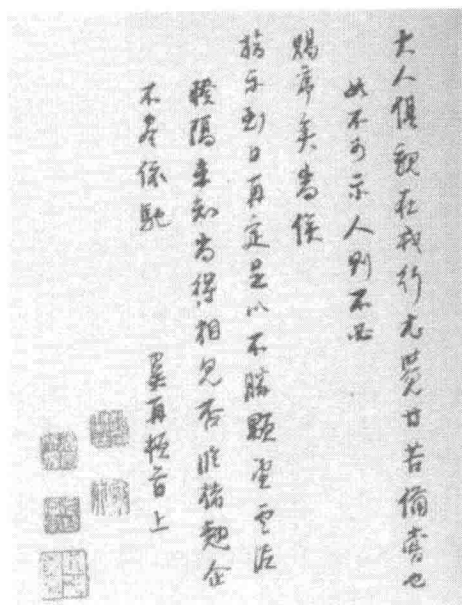 大人俱觀在我行尤覺甘苦備嘗也
此不可示人則不必
賜寄矣尚俟
指示到日再定是以不勝顒望雲泥
睽隔未知尚得相見否臨楮翹企
不盡依馳 再頓首上